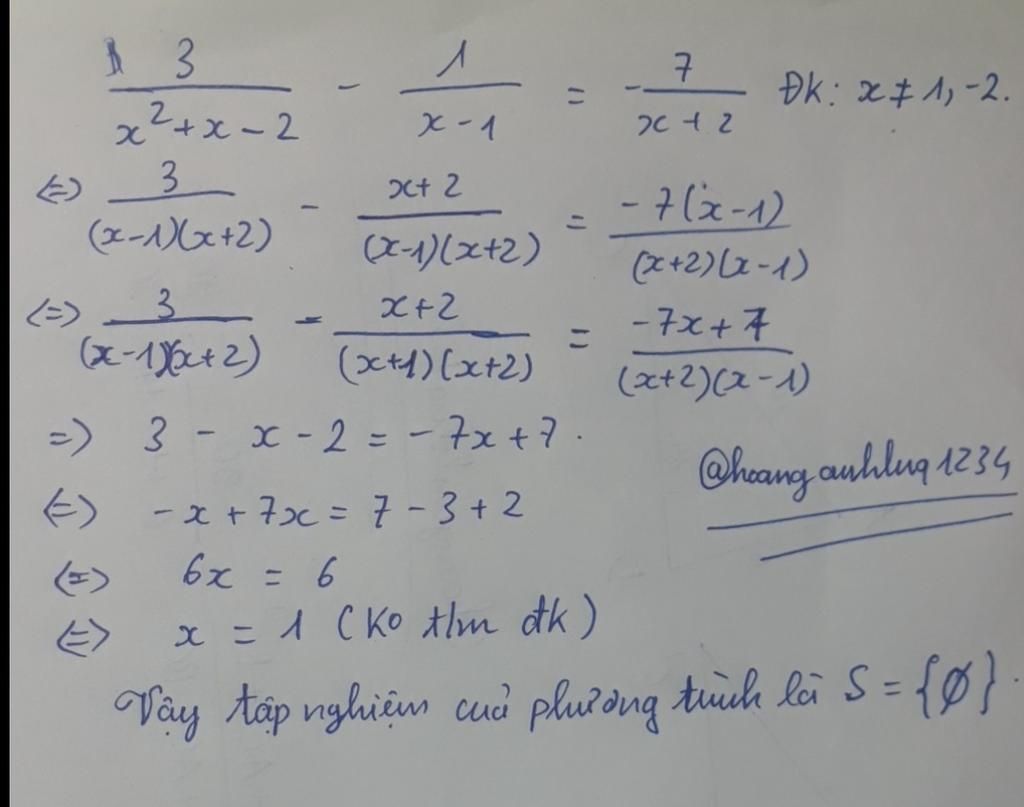 3/(x²+x-2) - 1/(x-1) = -7/(x+2) Đk: x ≠ 1, -2.
<=> 3/((x-1)(x+2)) - (x+2)/((x-1)(x+2)) = -7(x-1)/((x+2)(x-1))
<=> 3/((x-1)(x+2)) - (x+2)/((x+1)(x+2)) = (-7x+7)/((x+2)(x-1))
=> 3 - x - 2 = -7x + 7.
@hoanganhluq1234
<=> -x + 7x = 7 - 3 + 2
<=> 6x = 6
<=> x = 1 (Ko t/m đk)
Vậy tập nghiệm của phương trình là S = {Ø}.